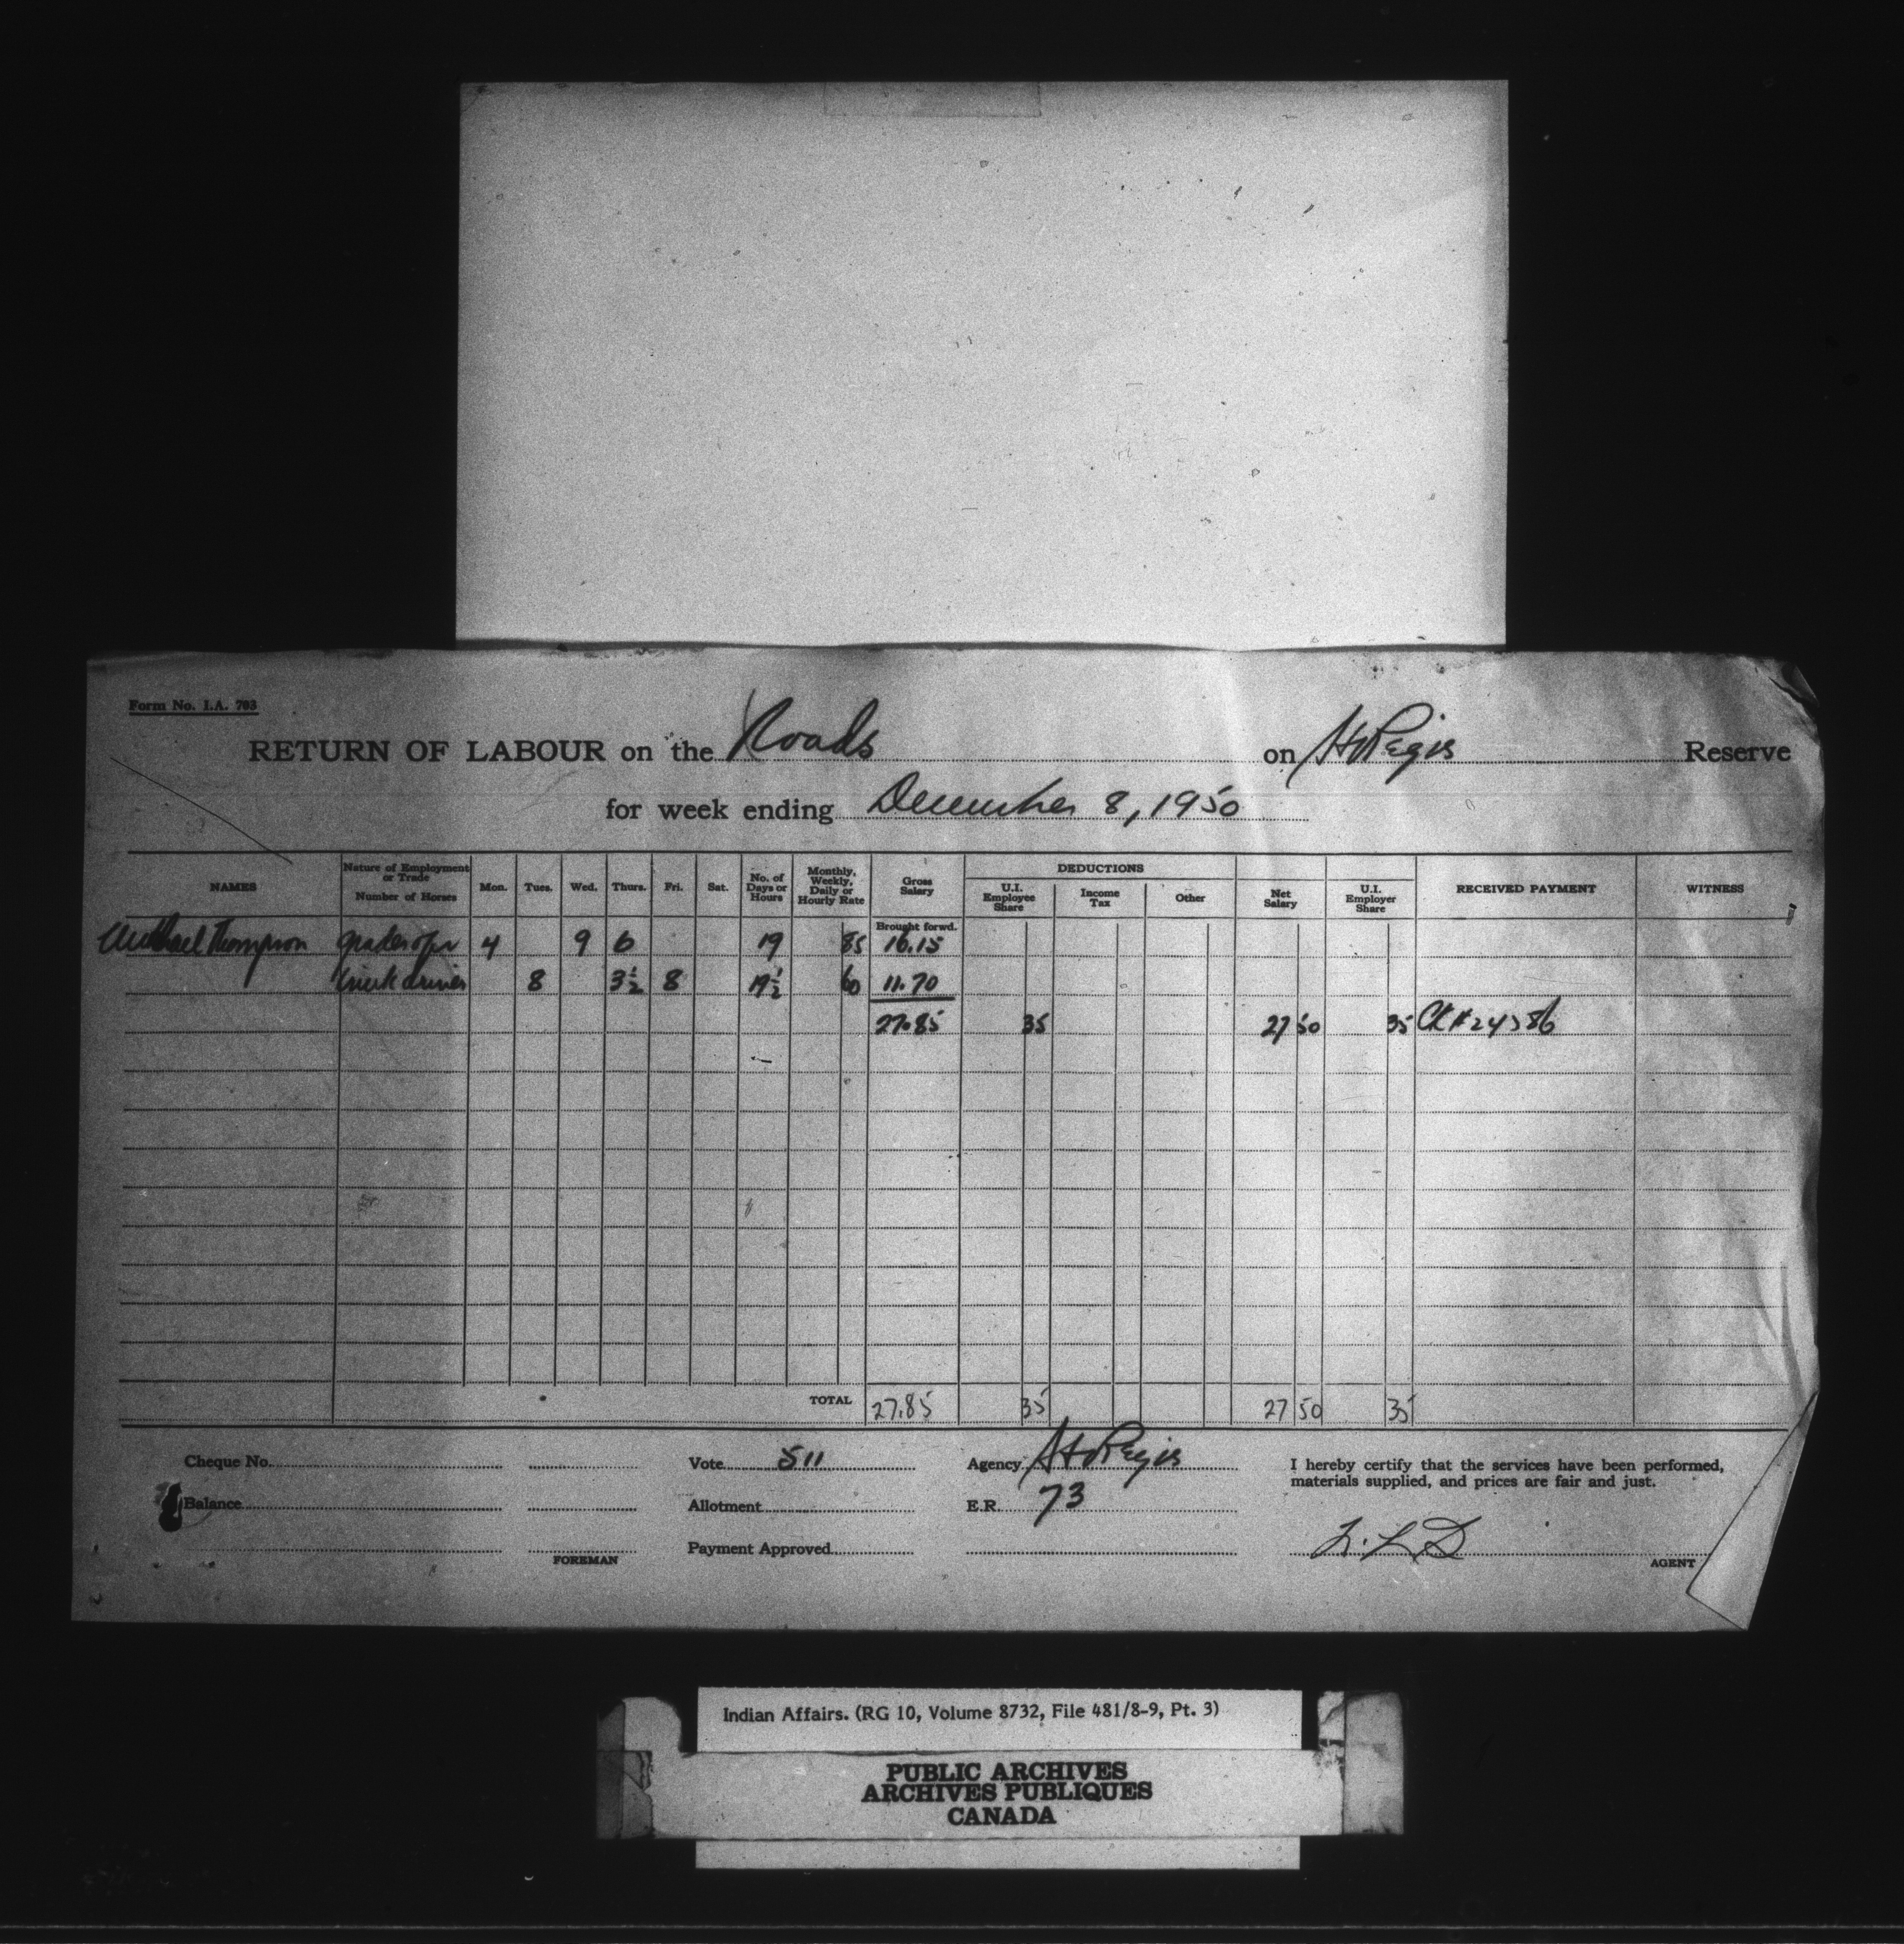 Form No. I.A. 703
RETURN OF LABOUR on the Roads on St Regis Reserve
for week ending December 8, 1950
NAMES Nature of Employment or Trade Number of Horses Mon. Tues. Wed. Thurs. Fri. Sat. No. of Days or Hours Monthly, Weekly, Daily or Hourly Rate Gross Salary DEDUCTIONS U.I. Employee Share Income Tax Other Net Salary U.I. Employer Share RECEIVED PAYMENT WITNESS
Brought forwd.
Michael Thompson grader opr 4 9 6 19 85 16.15
truck driver 8 3½ 8 19½ 60 11.70
27.85 35 27 50 35
TOTAL 27.85 35 27 50 35
Cheque No. Vote 511 Agency St Regis I hereby certify that the services have been performed,
materials supplied, and prices are fair and just.
Balance Allotment E.R. 73
FOREMAN Payment Approved AGENT
Indian Affairs. (RG 10, Volume 8732, File 481/8-9, Pt. 3)
PUBLIC ARCHIVES
ARCHIVES PUBLIQUES
CANADA